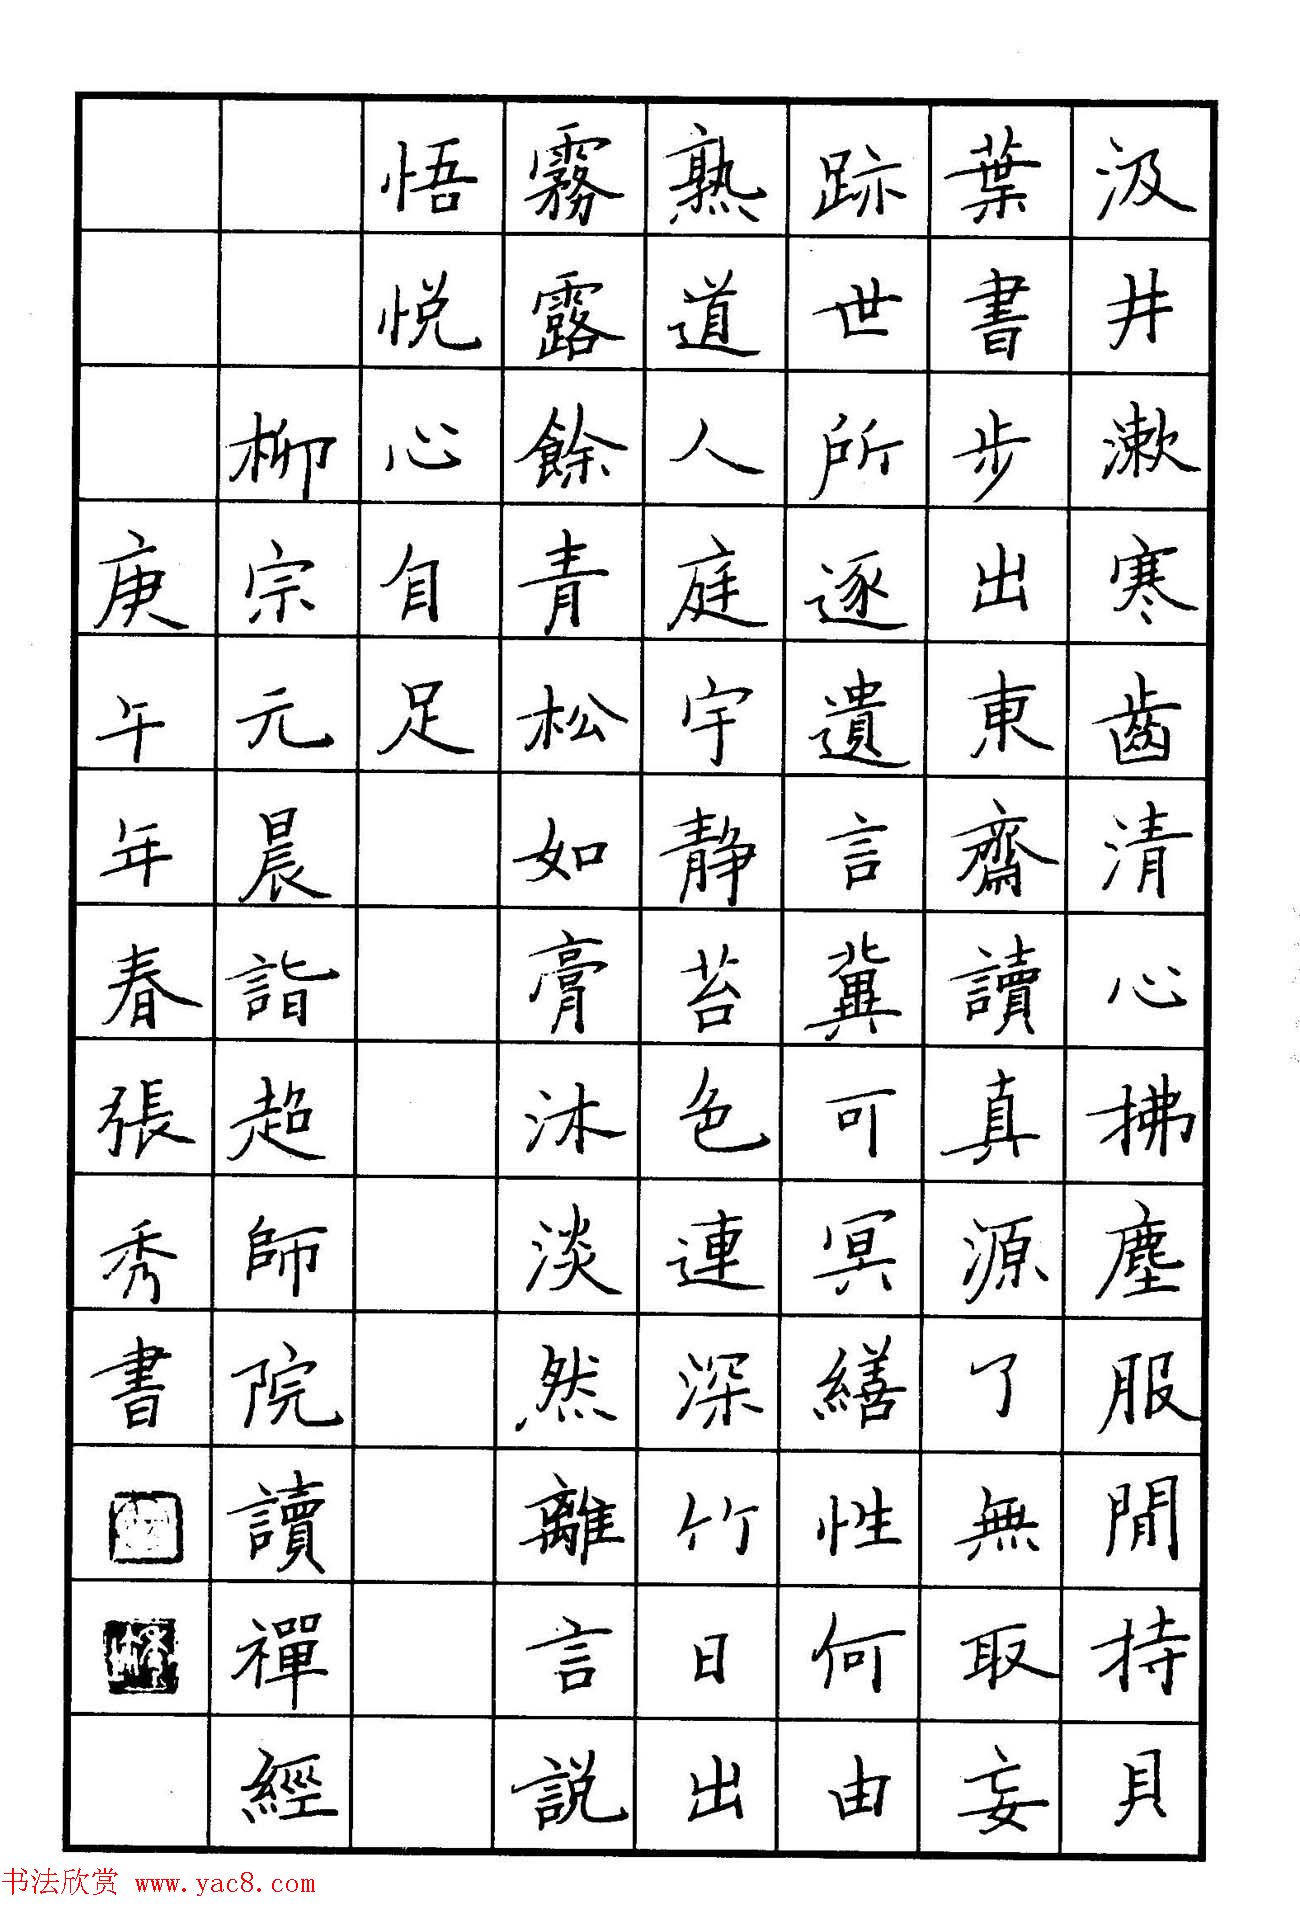 汲井漱寒齒清心拂塵服閒持貝
葉書步出東齋讀真源了無取妄
跡世所逐遺言冀可冥繕性何由
熟道人庭宇静苔色連深竹日出
霧露餘青松如膏沐淡然離言説
悟悦心自足
柳宗元晨詣超師院讀禪經
庚午年春張秀書
书法欣赏 www.yac8.com